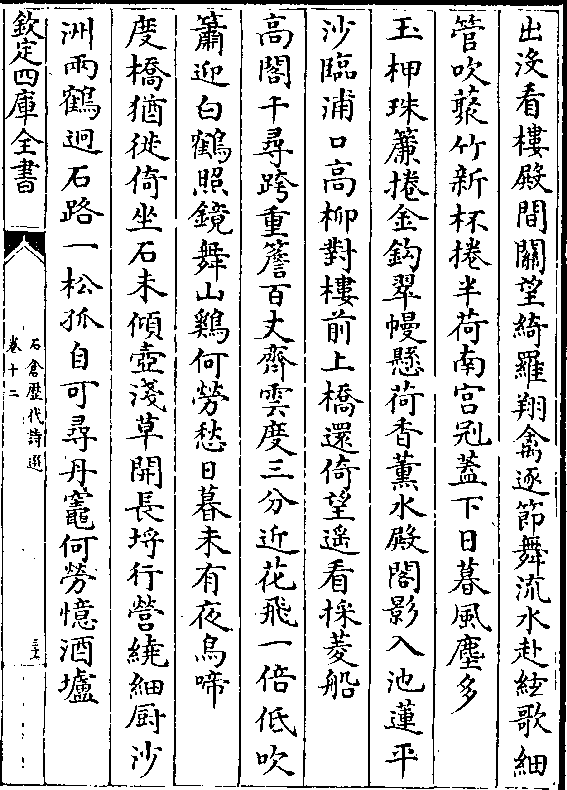 出没看樓殿間關望綺羅翔禽逐節舞流水赴絃歌細
管吹藂竹新杯捲半荷南宫冠蓋下日暮風塵多
玉柙珠簾捲金鈎翠幔懸荷香薰水殿閣影入池蓮平
沙臨浦口高柳對樓前上橋還倚望遥看採菱船
高閣千尋跨重簷百丈齊雲度三分近花飛一倍低吹
簫迎白鶴照鏡舞山鷄何勞愁日暮未有夜烏啼
度橋猶徙倚坐石未傾壺淺草開長埓行營繞細厨沙
洲兩鶴迥石路一松孤自可尋丹竈何勞憶酒壚
欽定四庫全書
石倉歴代詩選
卷十二